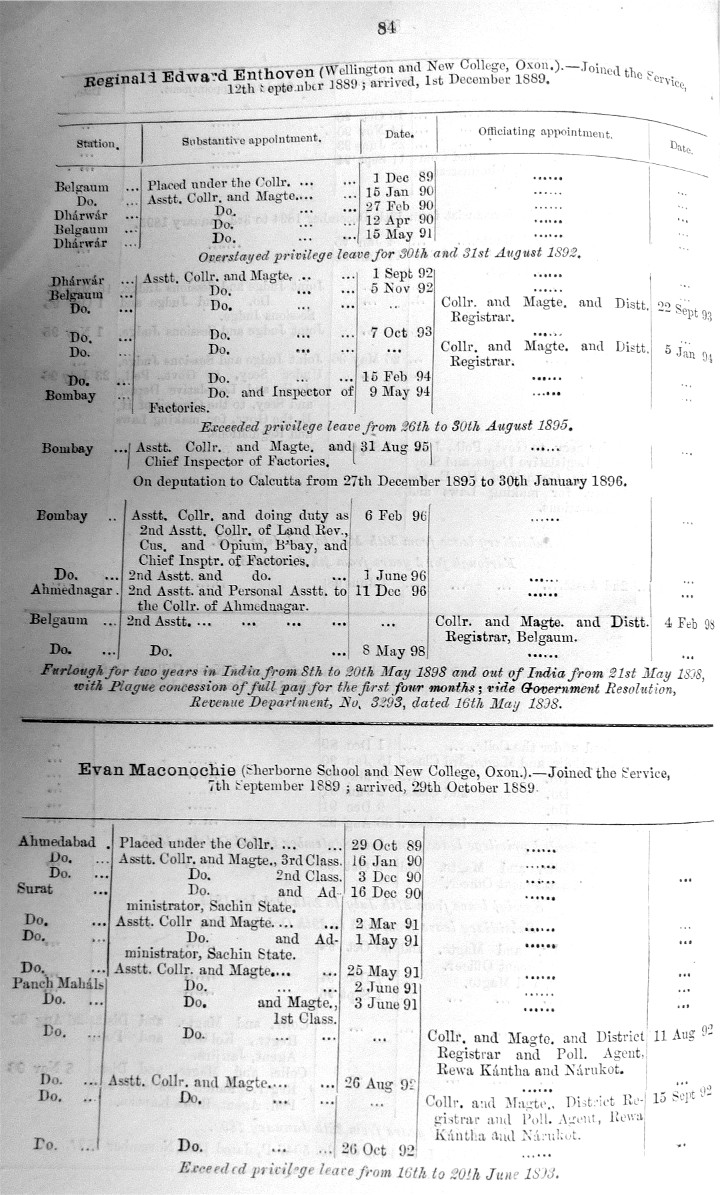 84
Reginald Edward Enthoven (Wellington and New College, Oxon.).—Joined the Service,
12th September 1889 ; arrived, 1st December 1889.
Station. Substantive appointment. Date. Officiating appointment. Date.
Belgaum ... Placed under the Collr. ... ... 1 Dec 89 ...... ...
Do. ... Asstt. Collr. and Magte.... ... 15 Jan 90 ...... ...
Dhárwár ... Do. ... ... 27 Feb 90 ...... ...
Belgaum ... Do. ... ... 12 Apr 90 ...... ...
Dhárwár ... Do. ... ... 15 May 91 ...... ...
Overstayed privilege leave for 30th and 31st August 1892.
Dhárwár ... Asstt. Collr. and Magte. ... ... 1 Sept 92 ...... ...
Belgaum ... Do. ... ... 5 Nov 92 ...... ...
Do. ... Do. ... ... ... Collr. and Magte. and Distt. 22 Sept 93
Registrar.
Do. ... Do. ... ... 7 Oct 93 ...... ...
Do. ... Do. ... ... ... Collr. and Magte. and Distt. 5 Jan 94
Registrar.
Do. ... Do. ... ... 15 Feb 94 ...... ...
Bombay ... Do. and Inspector of 9 May 94 ...... ...
Factories.
Exceeded privilege leave from 26th to 30th August 1895.
Bombay ... Asstt. Collr. and Magte. and 31 Aug 95 ...... ...
Chief Inspector of Factories.
On deputation to Calcutta from 27th December 1895 to 30th January 1896.
Bombay .. Asstt. Collr. and doing duty as 6 Feb 96 ...... ...
2nd Asstt. Collr. of Land Rev.,
Cus. and Opium, B'bay, and
Chief Insptr. of Factories.
Do. ... 2nd Asstt. and do. ... 1 June 96 ...... ...
Ahmednagar . 2nd Asstt. and Personal Asstt. to 11 Dec 96 ...... ...
the Collr. of Ahmednagar.
Belgaum ... 2nd Asstt. ... ... ... ... ... Collr. and Magte. and Distt. 4 Feb 98
Registrar, Belgaum.
Do. ... Do. ... 8 May 98 ...... ...
Furlough for two years in India from 8th to 20th May 1898 and out of India from 21st May 1898,
with Plague concession of full pay for the first four months ; vide Government Resolution,
Revenue Department, No. 3293, dated 16th May 1898.
Evan Maconochie (Sherborne School and New College, Oxon.).—Joined the Service,
7th September 1889 ; arrived, 29th October 1889.
Ahmedabad . Placed under the Collr. ... ... 29 Oct 89 ...... ...
Do. ... Asstt. Collr. and Magte., 3rd Class. 16 Jan 90 ...... ...
Do. ... Do. 2nd Class. 3 Dec 90 ...... ...
Surat ... Do. and Ad- 16 Dec 90 ...... ...
ministrator, Sachin State.
Do. ... Asstt. Collr and Magte.... ... 2 Mar 91 ...... ...
Do. ... Do. and Ad- 1 May 91 ...... ...
ministrator, Sachin State.
Do. ... Asstt. Collr. and Magte.... ... 25 May 91 ...... ...
Panch Maháls Do. ... ... 2 June 91 ...... ...
Do. ... Do. and Magte., 3 June 91 ...... ...
1st Class.
Do. ... Do. ... ... ... Collr. and Magte. and District 11 Aug 92
Registrar and Poll. Agent,
Rewa Kántha and Nárukot.
Do. ... Asstt. Collr. and Magte.... ... 26 Aug 92 ...... ...
Do. ... Do. ... ... ... Collr. and Magte., District Re- 15 Sept 92
gistrar and Poll. Agent, Rewa
Kántha and Nárukot.
Do. ... Do. ... ... 26 Oct 92 ...... ...
Exceeded privilege leave from 16th to 20th June 1893.